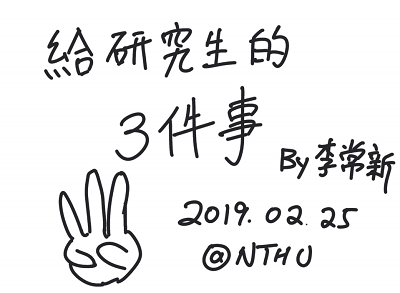 給研究生的
3件事
By李常新
2019.02.25
@NTHU